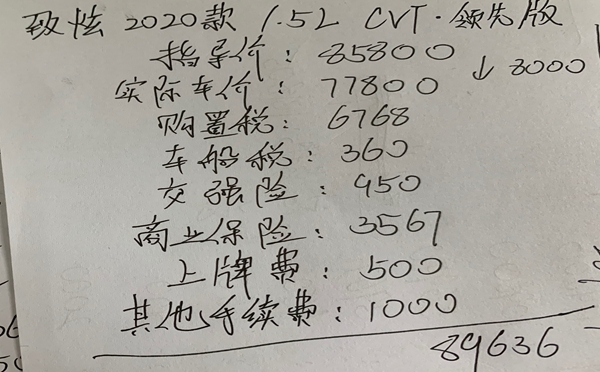 致炫 2020款 1.5L CVT·领先版
指导价：85800
实际车价：77800 ↓8000
购置税：6768
车船税：360
交强险：950
商业保险：3567
上牌费：500
其他手续费：1000
89636